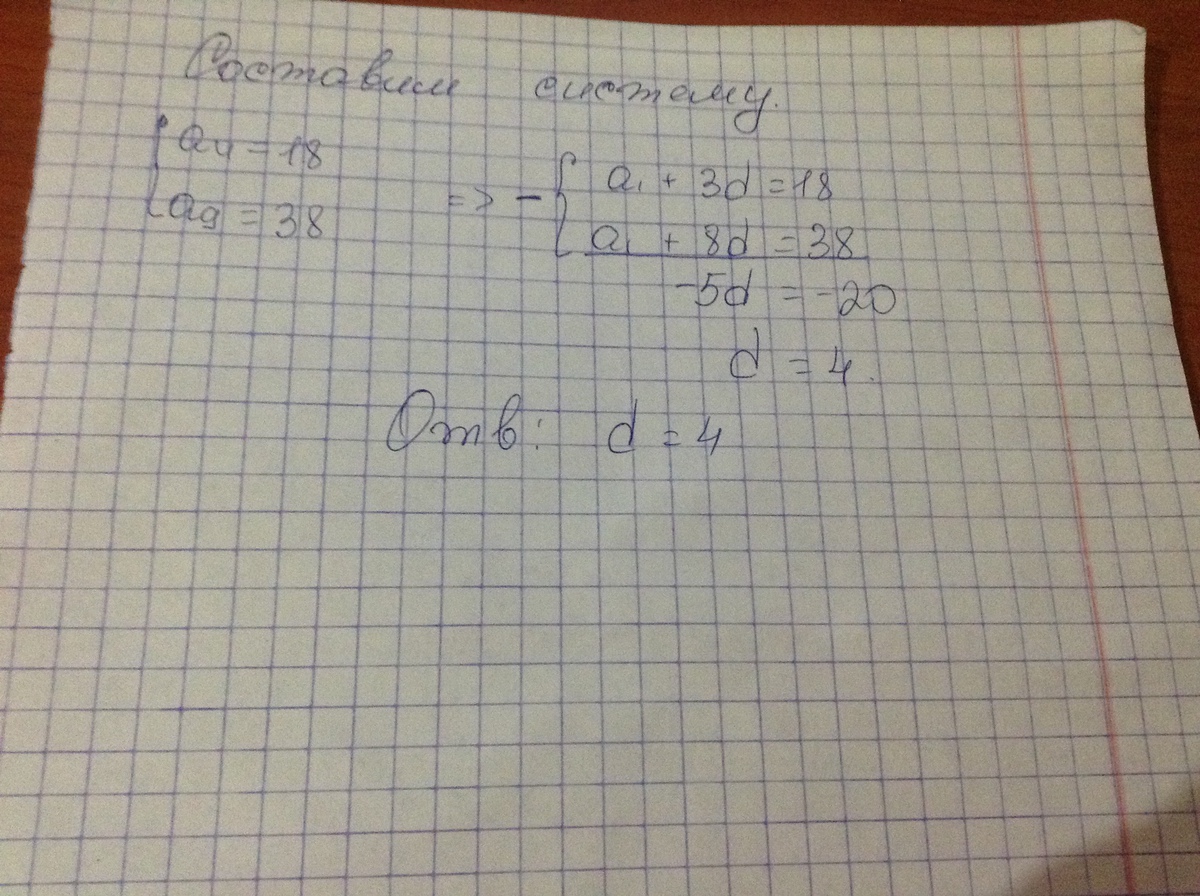 Составим систему.
{ a₄ = 18
{ a₉ = 38
=> - { a₁ + 3d = 18
{ a₁ + 8d = 38
-5d = -20
d = 4.
Отв: d = 4